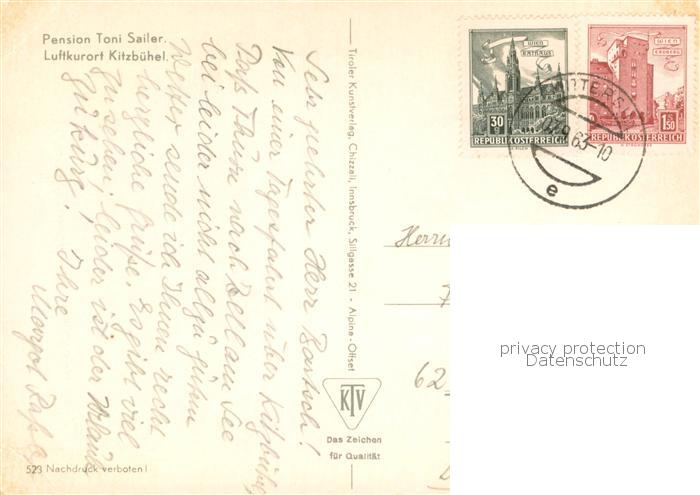 Pension Toni Sailer.
Luftkurort Kitzbühel.
Sehr geehrter Herr Bartsch!
Von einer Tagesfahrt über Kitzbühel,
Paß Thurn nach Zell am See
bei leider nicht allzu gutem
Wetter sende ich Ihnen recht
herzliche Grüße. Es gibt viel
zu sehen, leider ist der Urlaub
zu kurz!
Ihre
Margot
Tiroler Kunstverlag, Chizzali, Innsbruck, Sillgasse 21 - Alpina-Offset
KTV
Das Zeichen
für Qualität
523 Nachdruck verboten!
WIEN
RATHAUS
30 g
REPUBLIK ÖSTERREICH
WIEN
ERDBERG
1.50
REPUBLIK ÖSTERREICH
9.63-10
e
Herrn
62
privacy protection
Datenschutz